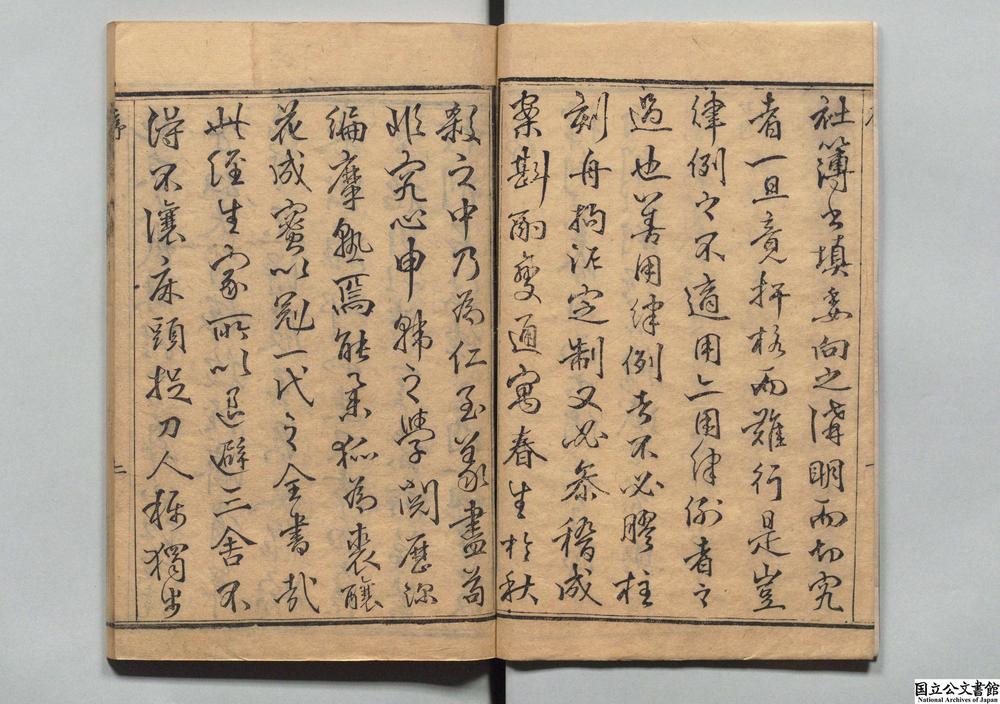 社簿書填委向之講明而切究
者一旦竟扞格而難行是豈
律例之不適用亦用律例者之
過也善用律例者不必膠柱
刻舟拘泥定制又必參稽成
案斟酌變通寓春生於秋
殺之中乃為仁至義盡苟
非究心申韓之學閱歷深
編摩熟焉能集狐為裘釀
花成蜜以冠一代之全書哉
此經生家所以退避三舍不
得不讓床頭捉刀人稱獨步
序
二
国立公文書館
National Archives of Japan